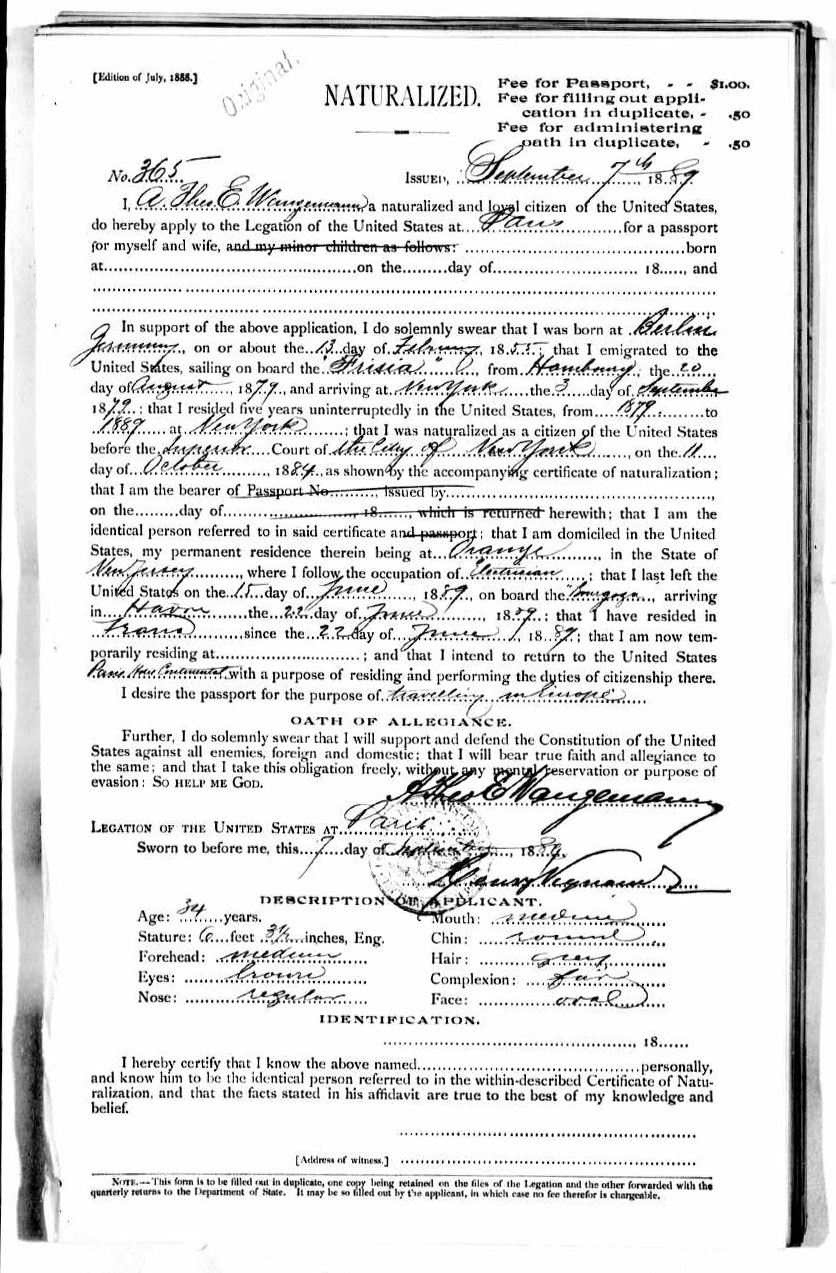 [Edition of July, 1888.]
Original.
NATURALIZED.
Fee for Passport, - - $1.00.
Fee for filling out appli-
cation in duplicate, - .50
Fee for administering
oath in duplicate, - .50
No. 365 Issued, September 7th 1889
I, A. Theo E. Wangemann, a naturalized and loyal citizen of the United States,
do hereby apply to the Legation of the United States at Paris for a passport
for myself and wife, and my minor children as follows: born
at on the day of 18 , and
In support of the above application, I do solemnly swear that I was born at Berlin
Germany, on or about the 13 day of February, 1855; that I emigrated to the
United States, sailing on board the "Frisia" from Hambourg, the 20
day of August, 1879, and arriving at New York the 3 day of September
1879; that I resided five years uninterruptedly in the United States, from 1879 to
1889 at New York; that I was naturalized as a citizen of the United States
before the Superior Court of the City of New York, on the 11
day of October, 1884 as shown by the accompanying certificate of naturalization;
that I am the bearer of Passport No. , issued by ,
on the day of , 18 , which is returned herewith; that I am the
identical person referred to in said certificate and passport; that I am domiciled in the United
States, my permanent residence therein being at Orange, in the State of
New Jersey, where I follow the occupation of Electrician; that I last left the
United States on the 15 day of June, 1889, on board the Bourgogne, arriving
in Havre the 22 day of June, 1889; that I have resided in
France since the 22 day of June, 1889; that I am now tem-
porarily residing at ; and that I intend to return to the United States
Paris Hotel Continental with a purpose of residing and performing the duties of citizenship there.
I desire the passport for the purpose of travelling in Europe
OATH OF ALLEGIANCE.
Further, I do solemnly swear that I will support and defend the Constitution of the United
States against all enemies, foreign and domestic; that I will bear true faith and allegiance to
the same; and that I take this obligation freely, without any mental reservation or purpose of
evasion: So help me God.
A Theo E Wangemann
Legation of the United States at Paris
Sworn to before me, this 7 day of September, 1889.
Henry Vignaud
DESCRIPTION OF APPLICANT.
Age: 34 years. Mouth: medium
Stature: 6 feet 3½ inches, Eng. Chin: round
Forehead: medium Hair: grey
Eyes: brown Complexion: fair
Nose: regular Face: oval
IDENTIFICATION.
, 18
I hereby certify that I know the above named personally,
and know him to be the identical person referred to in the within-described Certificate of Natu-
ralization, and that the facts stated in his affidavit are true to the best of my knowledge and
belief.
[Address of witness.]
Note.—This form is to be filled out in duplicate, one copy being retained on the files of the Legation and the other forwarded with the
quarterly returns to the Department of State. It may be so filled out by the applicant, in which case no fee therefor is chargeable.